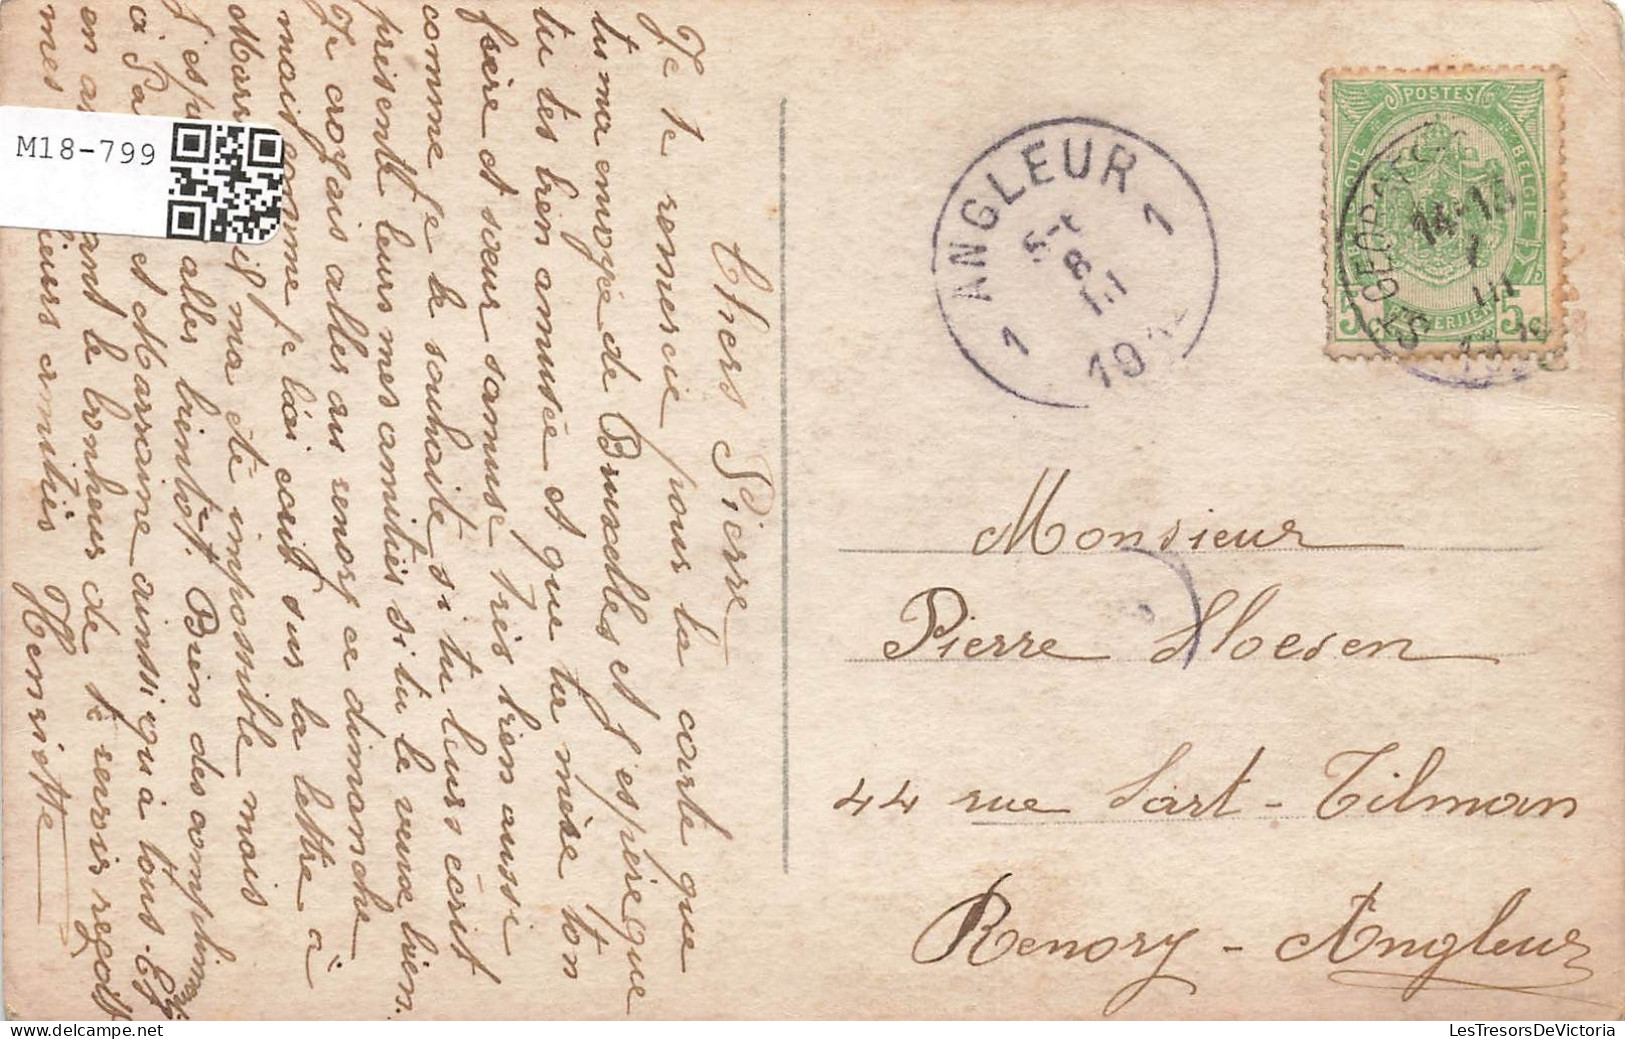 Chers Pierre
Je te remercie pour la carte que
tu ma envoyé de Bruxelles et j'espère que
tu tes bien amusée et que tu mère ton
frère et sœur samuse très bien aussi
comme je le souhaite si tu leurs écrit
prisente leurs mes amitiés si tu le veux bien.
Je croyais alles au renory ce dimanche
mais comme je l'ai écrit sur la lettre à
Marr il ma été imposible mais
J'esp alles bientôt. Bien des compliments
à Pa et Marraine ainssi qu'a tous. Et
en a ant le bonheur de te revoir reçois
mes ieurs amitiés
Henriette
M18-799
ANGLEUR
1 1
8
III
POSTES
BELGIQUE BELGIE
5 5
14-15
III
Monsieur
Pierre Hoesen
44 rue Sart-Tilman
Renory - Angleur
LesTresorsDeVictoria